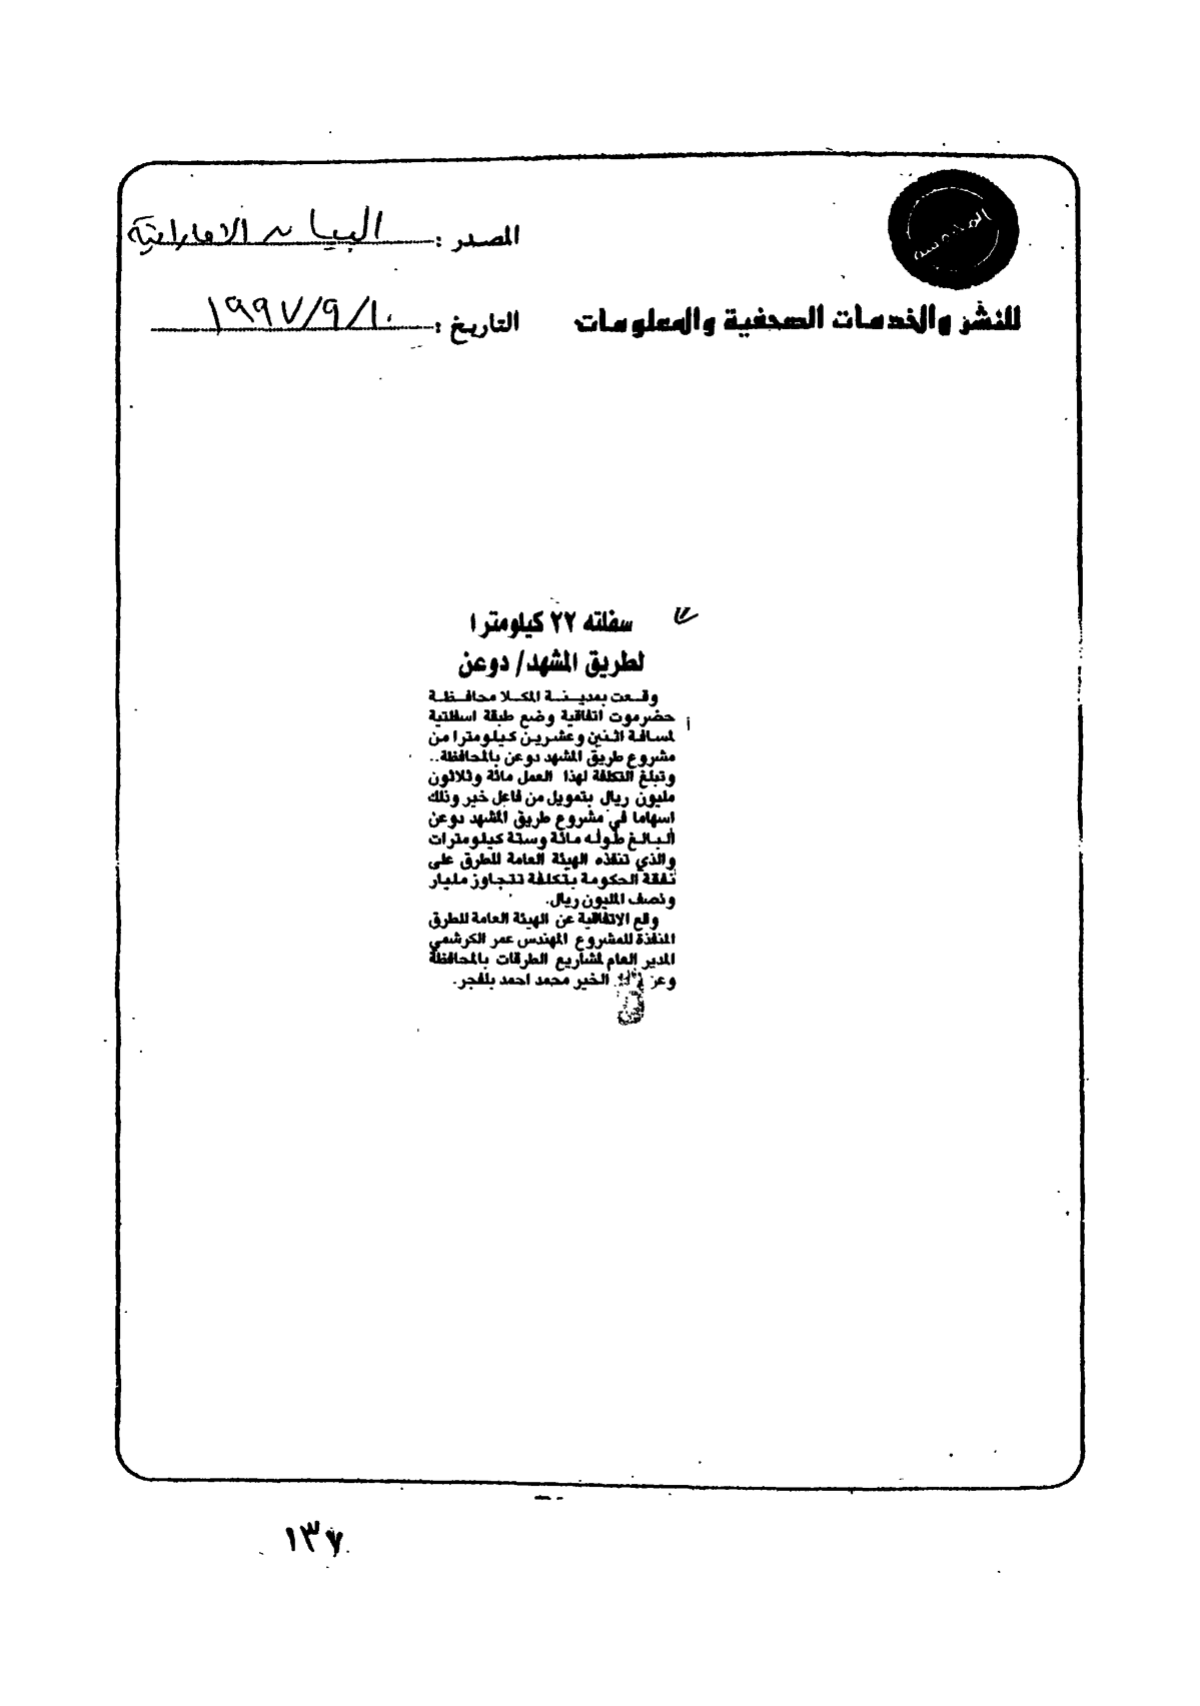 المحروسة
المصدر : البيان الاماراتية
للنشر والخدمات الصحفية والمعلومات
التاريخ : ١٩٩٧/٩/١٠
سفلته ٢٢ كيلومترا
لطريق المشهد/ دوعن
وقعت بمدينة المكلا محافظة
حضرموت اتفاقية وضع طبقة اسفلتية
لمسافة اثنين وعشرين كيلومترا من
مشروع طريق المشهد دوعن بالمحافظة..
وتبلغ التكلفة لهذا العمل مائة وثلاثون
مليون ريال بتمويل من فاعل خير وذلك
اسهاما في مشروع طريق المشهد دوعن
البالغ طوله مائة وستة كيلومترات
والذي تنفذه الهيئة العامة للطرق على
نفقة الحكومة بتكلفة تتجاوز مليار
ونصف المليون ريال.
وقع الاتفاقية عن الهيئة العامة للطرق
المنفذة للمشروع المهندس عمر الكرشمي
المدير العام لمشاريع الطرقات بالمحافظة
وعن الخير محمد احمد بلفجر.
١٣٧